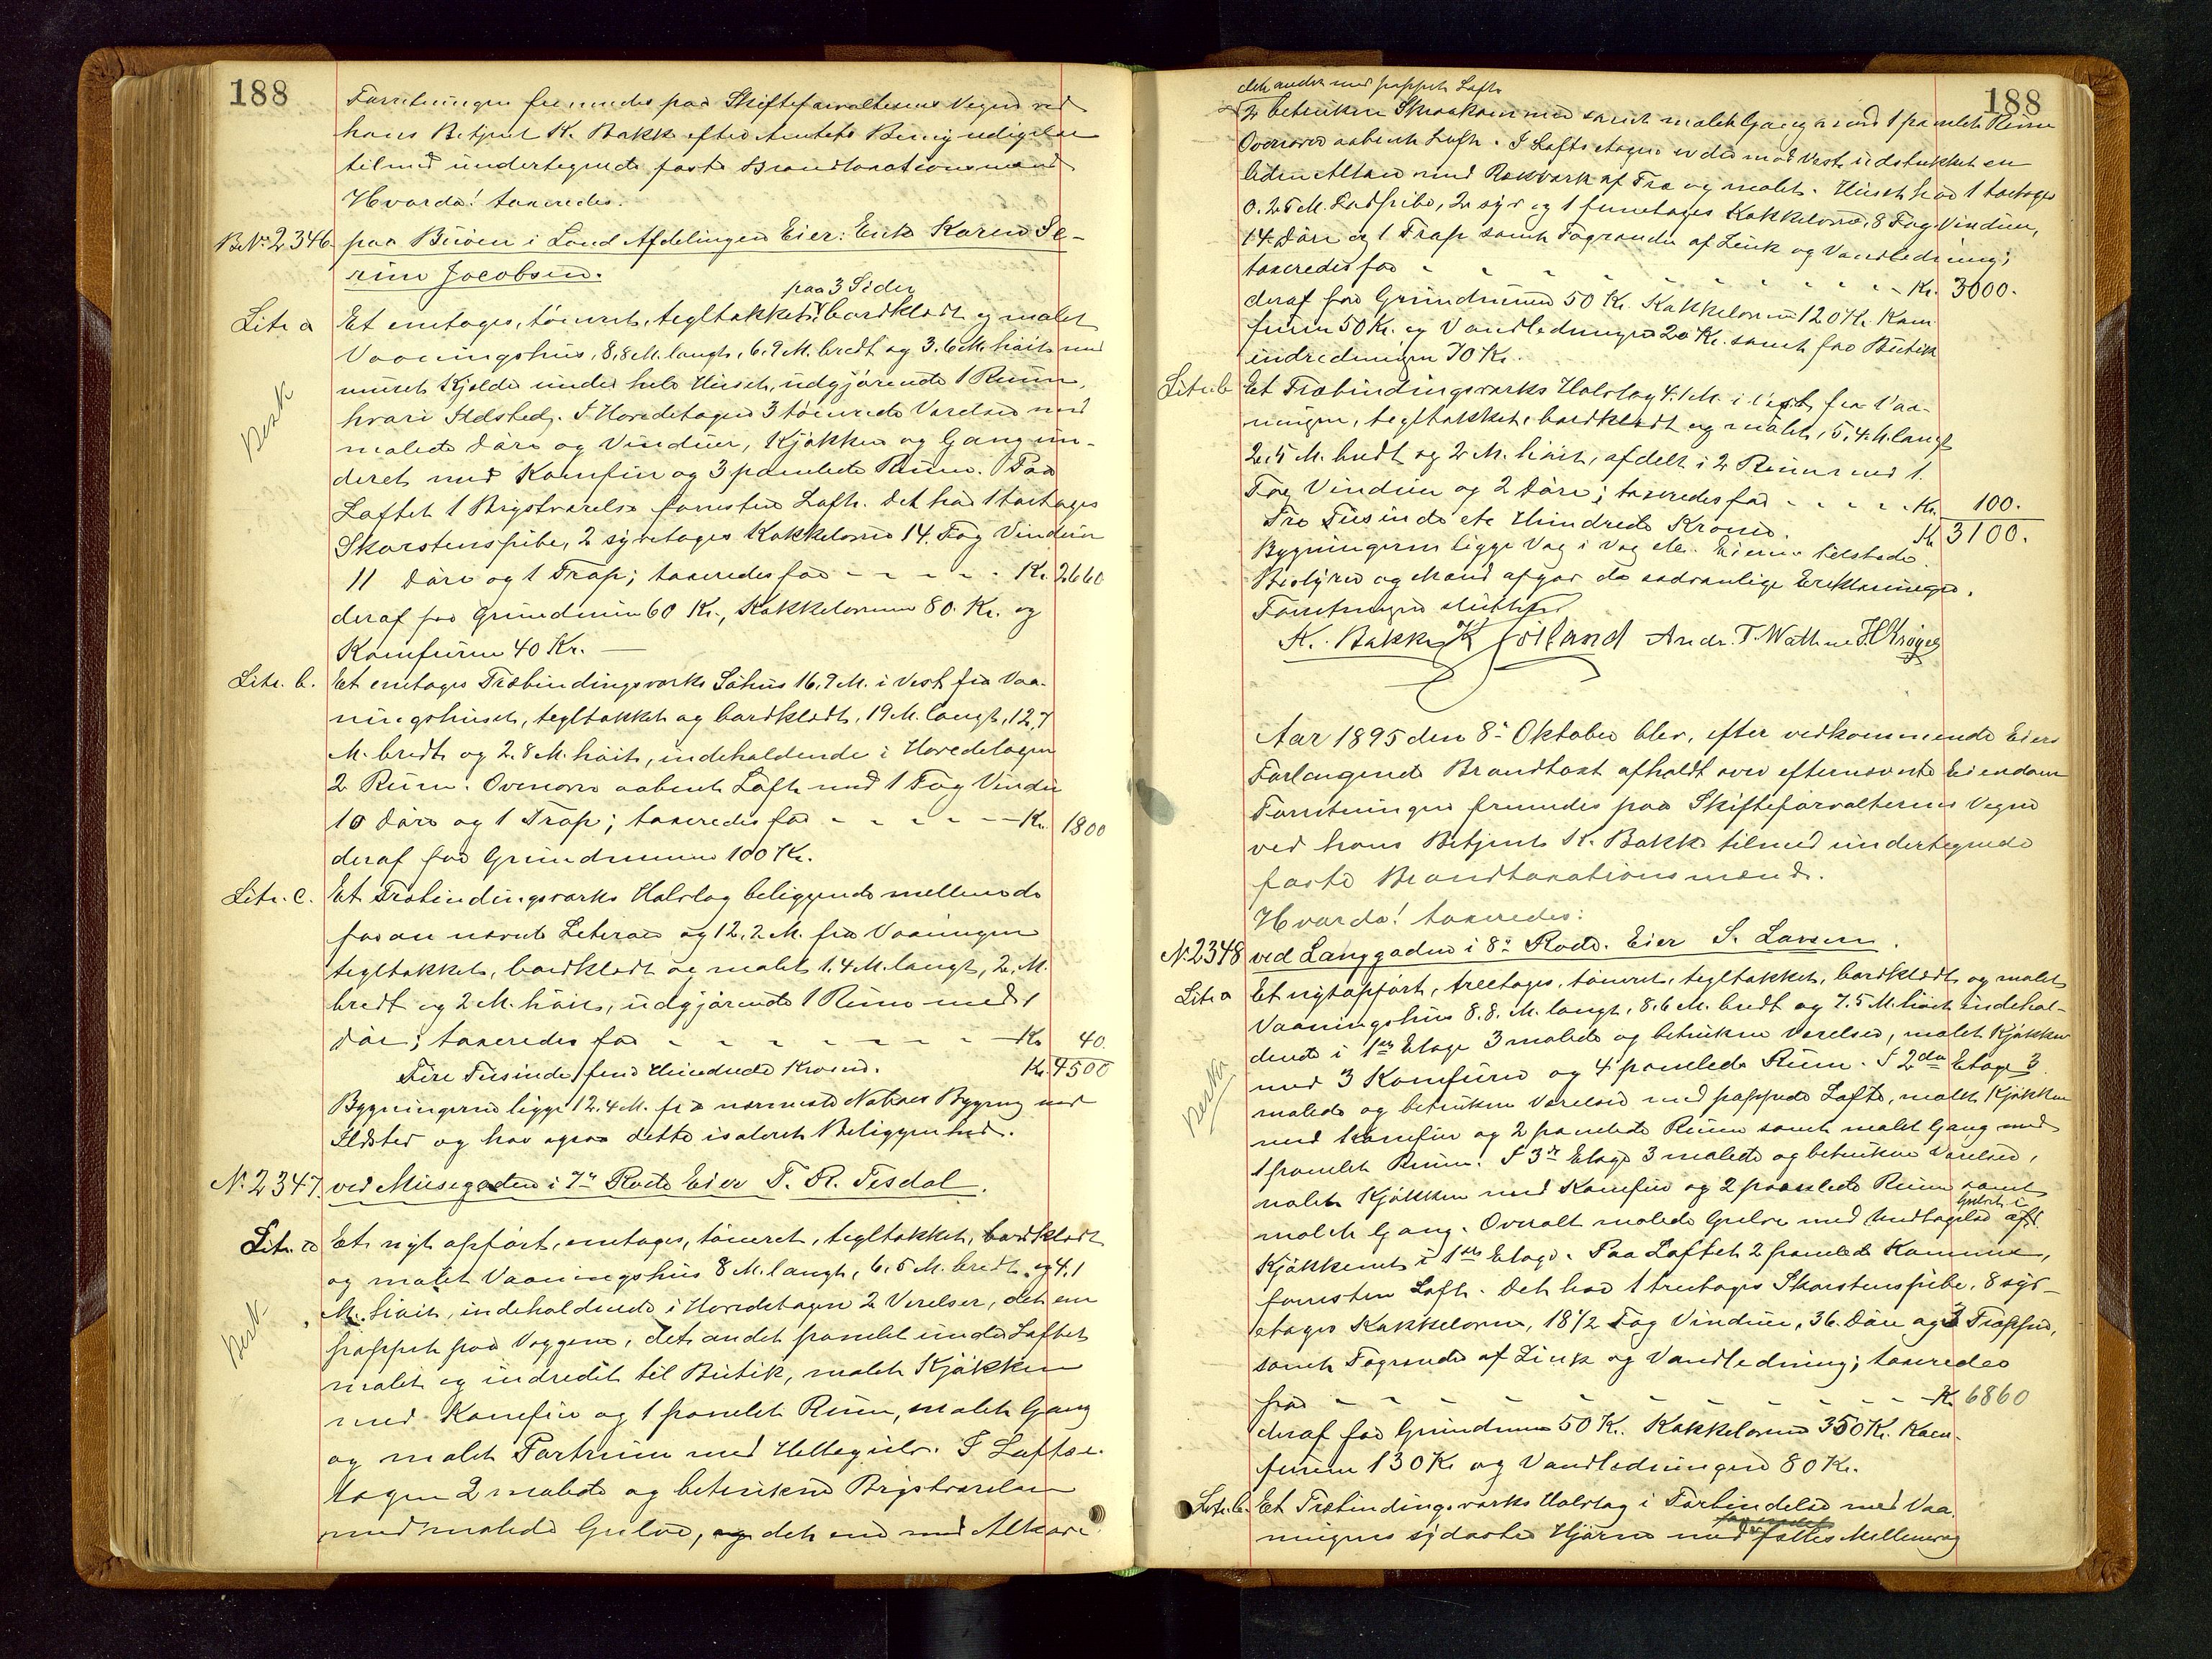 188
Forretningen fremmedes paa Skifteforvalterens Vegne ved
hans Betjent K. Bakke efter Amtets Bemyndigelse
tilmed undertegnede faste Brandtaxationsmænd
Hvorda! taxeredes.
B.Nº 2346 paa Buøen i Land Afdelingen Eier: Enke Karen Se-
rine Jacobsen.
paa 3 Sider
Litr a Et enetages, tømret, tegltækket, bordklædt og malet
Vaaningshus, 8,8 M. langt, 6.9 M. bredt og 3.6 M. høit med
muret Kjelder under hele Huset, udgjørende 1 Rum,
hvori Ildsted. I Hovedetagen 3 tømrede Værelser med
malede Døre og Vinduer, Kjøkken og Gang un-
deret med Komfur og 3 panelede Rum. Paa
Loftet 1 Brystværelse forresten Loft. Det har 1 toetages
Skorstenspibe, 2 syvetages Kakkelovne 14. Fag Vinduer
11 Døre og 1 Trap; taxeredes for - - - - - Kr. 2660
deraf for Grundmuren 60 Kr., Kakkelovnene 80. Kr. og
Komfuren 40 Kr. —
Besk
Litr. b. Et enetages Træbindingsværks Søhus 16,9 M. i Vest fra Vaa-
ningshuset, tegltækket og bordklædt, 19 M. langt, 12,7
M. bredt og 2.8 M. høit, indeholdende i Hovedetagen
2 Rum. Ovenover aabent Loft med 1 Fag Vindu
10 Døre og 1 Trap; taxeredes for - - - - - Kr. 1800
deraf for Grundmuren 100 Kr.
Litr. c. Et Træbindingsværks Halvtag beliggende mellem de
foran nævnte Literaer og 12,2 M. fra Vaaningen
tegltækket, bordklædt og malet 1.4 M. langt, 2. M.
bredt og 2 M. høit, udgjørende 1 Rum med 1
Dør; taxeredes for - - - - - - - - Kr. 40.
Fire Tusinde fem Hundrede Kroner. Kr. 4500
Bygningerne ligge 12.4 M. fra nærmeste Naboes Bygning med
Ildsted og har ogsaa dette isoleret Beliggenhed.
Nº 2347. ved Musegaden i 7de Rode Eier T. R. Tisdal.
Litr. a Et nyt opført, enetages, tømret, tegltækket, bordklædt
og malet Vaaningshus 8 M. langt, 6.5 M. bredt og 4,1
M. høit, indeholdende i Hovedetagen 2 Værelser, det ene
pappet paa Væggene, det andet panelet under Loftet
malet og indredet til Butik, malet Kjøkken
med Komfur og 1 panelet Rum, malet Gang
og malet Portrum med Hellegulv. I Loftse-
tagen 2 malede og betrukne Brystværelser
med malede Gulve, og det ene med Alkove
Besk.
188
det andet med pappet Loft
2 betrukne Skraakamre samt malet Gang med 1 panelet Rum
Ovenover aabent Loft. I Loftsetagen er der mod Vest udstukket en
liden Altan med Rækværk af Træ og malet. Huset har 1 toetages
0.25 M. Rørpibe, 2 syv og 1 femetages Kakkelovne, 8 Fag Vinduer,
14. Døre og 1 Trap samt Tagrender af Zink og Vandledning;
taxeredes for - - - - - - - - - - - Kr. 3000.
deraf for Grundmuren 50 Kr. Kakkelovnene 120 Kr. Kom-
furen 50 Kr. og Vandledningen 20 Kr. samt for Butik
indredningen 70 Kr.
Litr. b Et Træbindingsværks Halvtag 4.1 M. i Vest fra Vaa-
ningen, tegltækket, bordklædt og malet, 5,4 M. langt
2.5 M. bredt og 2 M. høit, afdelt i 2 Rum med 1.
Fag Vinduer og 2 Døre; taxeredes for - - - - - Kr. 100.
Tre Tusinde ete Hundrede Kroner. Kr. 3100.
Bygningerne ligge Væg i Væg etc. Eieren tilstede.
Bestyrer og Mænd afgav de sædvanlige Erklæringer.
Forretningen sluttet
K. Bakke K Goiland Andr. T. Wathne H. Krøger
Aar 1895 den 8de Oktober blev, efter vedkommende Eiers
Forlangende Brandtaxt afholdt over efternævnte Eiendom
Forretningen fremmedes paa Skifteforvalterens Vegne
ved hans Betjent K. Bakke tilmed undertegnede
faste Brandtaxationsmænd.
Hvorda! taxeredes:
Nº 2348 ved Langgaden i 8de Rode. Eier S. Larsen.
Litr. a Et nyt opført, treetages, tømret, tegltækket, bordklædt og malet
Vaaningshus 8.8. M. langt, 8.6 M. bredt og 7.5 M. høit indehol-
dende i 1ste Etage 3 malede og betrukne Værelser, malet Kjøkken
med 3 Komfurer og 4 panelede Rum. I 2den Etage 3
malede og betrukne Værelser med pappede Lofte, malet Kjøkken
med Komfur og 2 panelede Rum samt malet Gang med
1 panelet Rum. I 3de Etage 3 malede og betrukne Værelser,
malet Kjøkken med Komfur og 2 panelede Rum samt
malet Gang. Overalt malede Gulve med Undtagelse af
Gulvet i
Kjøkkenet i 1ste Etage. Paa Loftet 2 panelede Kammere,
forresten Loft. Det har 1 treetages Skorstenspibe, 8 syv-
etages Kakkelovne, 18 1/2 Fag Vinduer, 36. Døre og 3 Trapper,
samt Tagrender af Zink og Vandledning; taxeredes
for - - - - - - - - - - - Kr. 6860
deraf for Grundmuren 50 Kr. Kakkelovnene 350 Kr. Kom-
furene 130 Kr og Vandledningen 80 Kr.
Besk
Litr. b. Et Træbindingsværks Halvtag i Forbindelse med Vaa-
ningens sydøstre Hjørne med fælles Mellemvæg